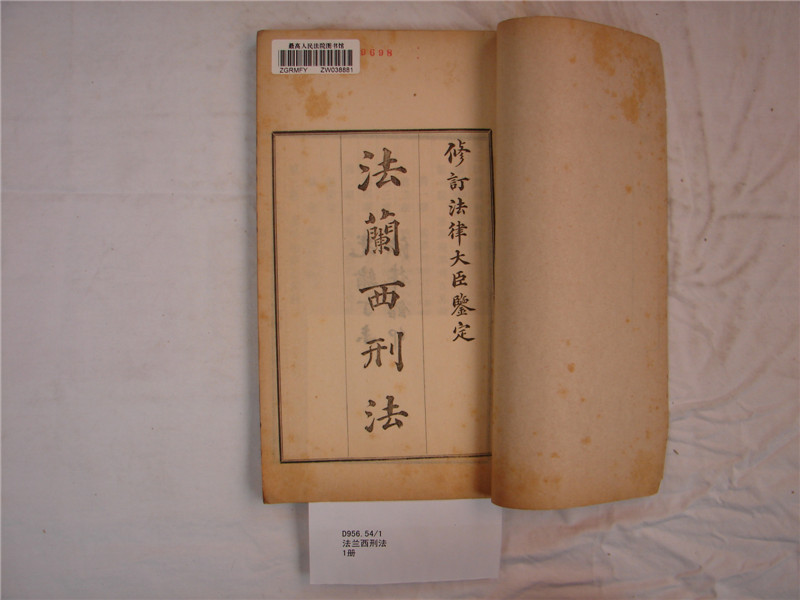 最高人民法院图书馆
ZGRMFY ZW038881
9698
修訂法律大臣鑒定
法蘭西刑法
D956.54/1
法兰西刑法
1册